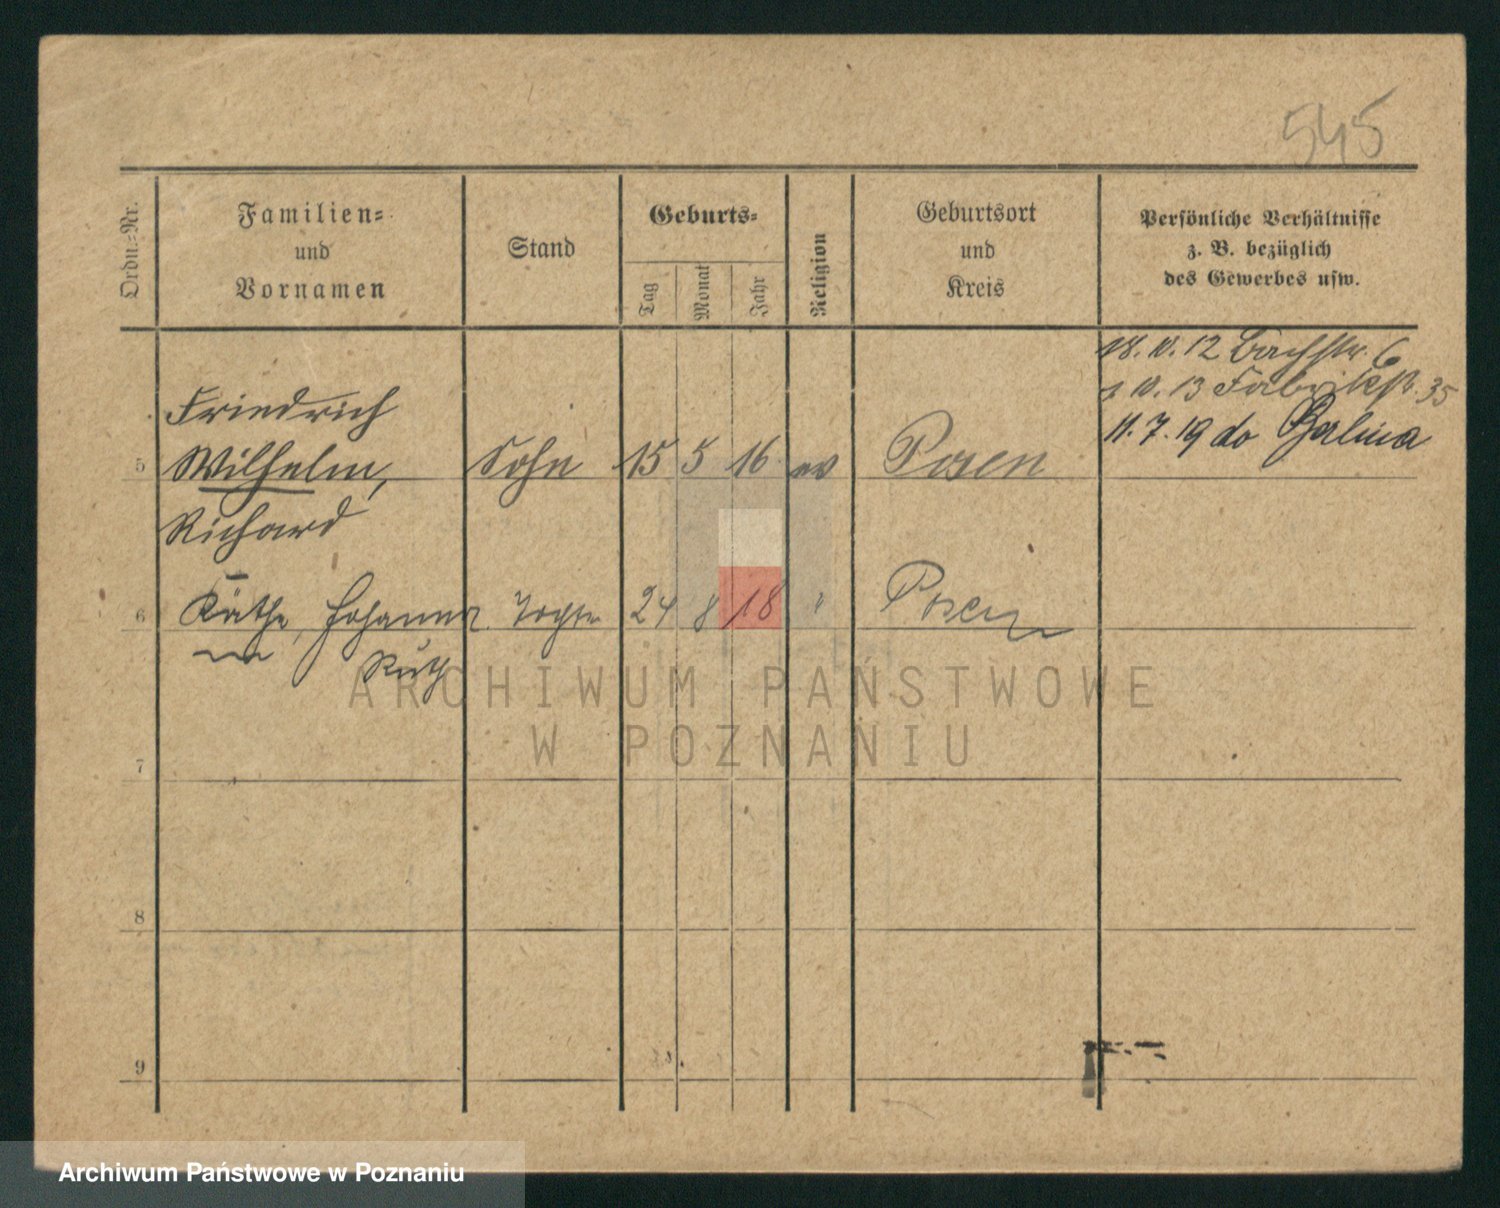 545
Ordn.-Nr.
Familien-
und
Vornamen
Stand
Geburts-
Tag
Monat
Jahr
Religion
Geburtsort
und
Kreis
Persönliche Verhältnisse
z. B. bezüglich
des Gewerbes usw.
18. 10. 12 Bachstr. 6
10. 13 Fabrikstr. 35
11. 7. 19 do Berlina
Friedrich
5 Wilhelm, Sohn 15 5 16 ev Posen
Richard
6 Käthe, Johanna Tochter 24 8 18 " Posen
Ruth
7
8
9
ARCHIWUM PAŃSTWOWE
W POZNANIU
Archiwum Państwowe w Poznaniu